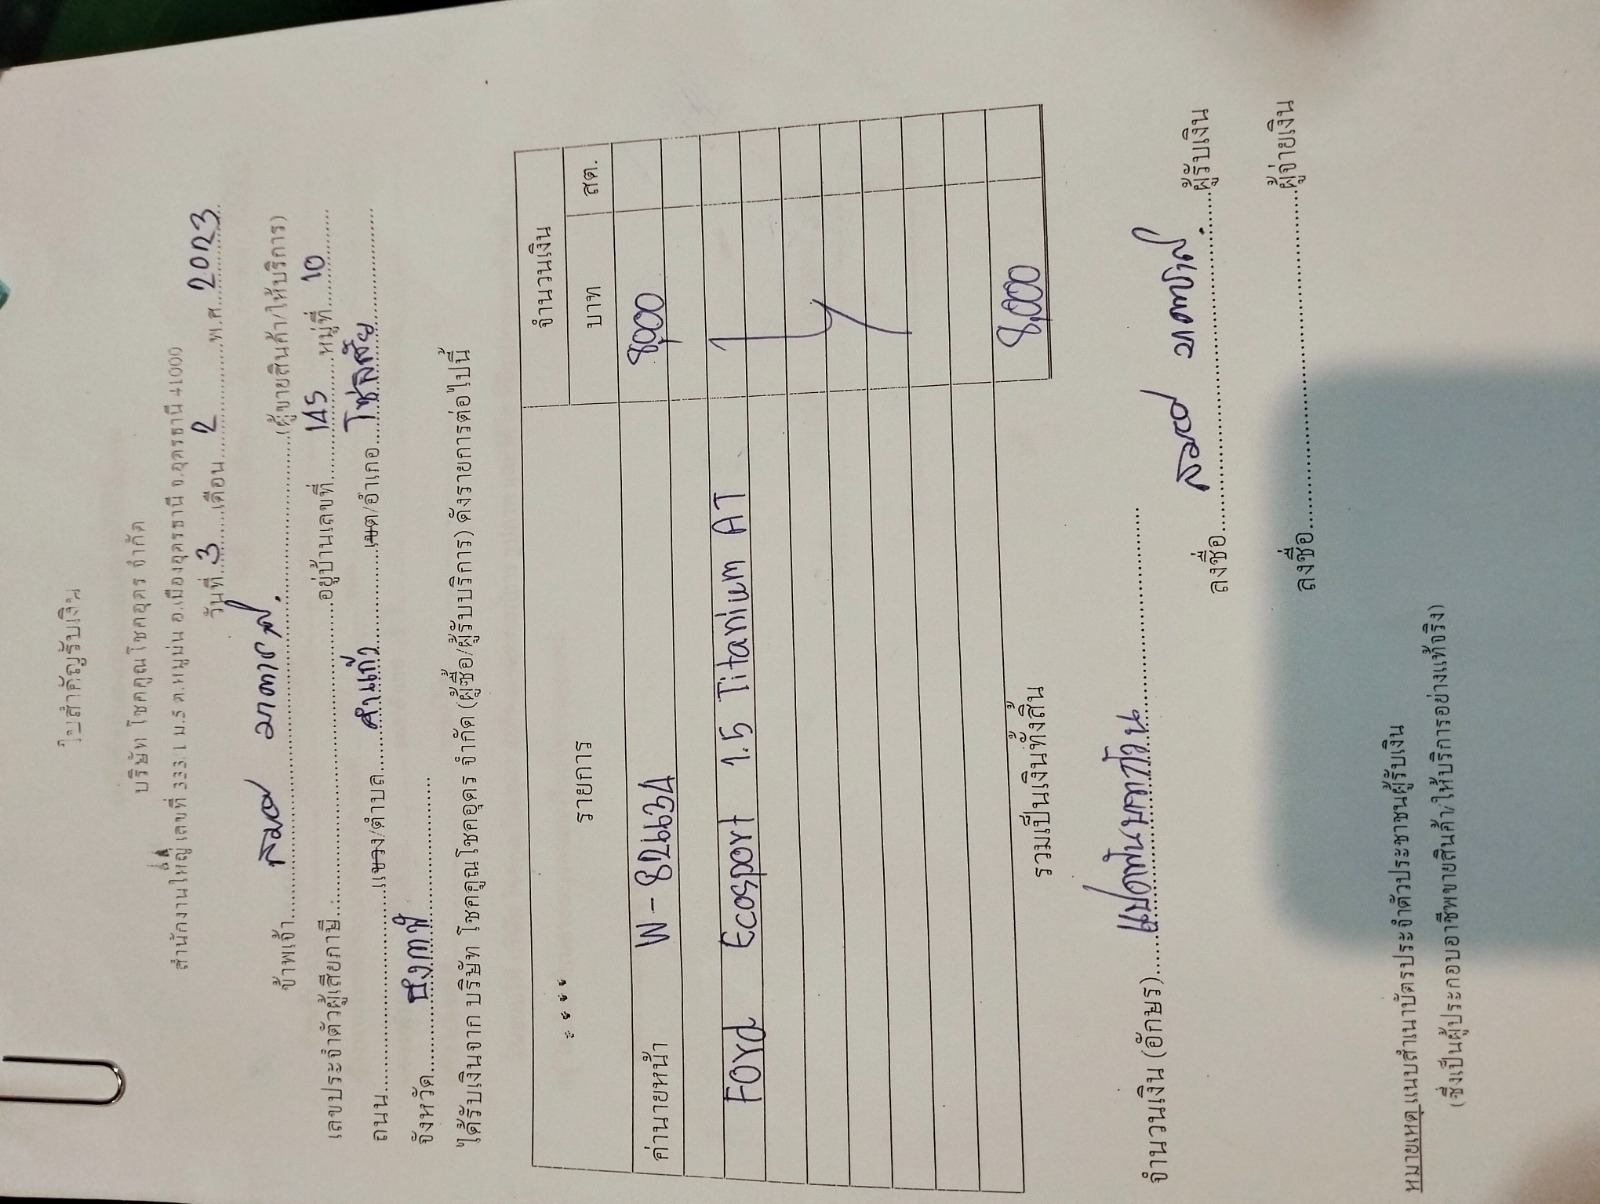 ใบสำคัญรับเงิน
บริษัท โชคคูณโชคอุดร จำกัด
สำนักงานใหญ่ เลขที่ 333/1 ม.5 ต.หมูม่น อ.เมืองอุดรธานี จ.อุดรธานี 41000
วันที่ 3 เดือน 2 พ.ศ. 2023
ข้าพเจ้า (ผู้ขายสินค้า/ให้บริการ)
เลขประจำตัวผู้เสียภาษี อยู่บ้านเลขที่ 145 หมู่ที่ 10
ถนน แขวง/ตำบล คำแก้ว เขต/อำเภอ โซ่พิสัย
จังหวัด บึงกาฬ
ได้รับเงินจาก บริษัท โชคคูณโชคอุดร จำกัด (ผู้ซื้อ/ผู้รับบริการ) ดังรายการต่อไปนี้
รายการ จำนวนเงิน
บาท สต.
ค่านายหน้า W-82663A 8,000
Ford Ecosport 1.5 Titanium AT
รวมเป็นเงินทั้งสิ้น 8,000
จำนวนเงิน (อักษร) แปดพันบาทถ้วน
ลงชื่อ ผู้รับเงิน
ลงชื่อ ผู้จ่ายเงิน
หมายเหตุ แนบสำเนาบัตรประจำตัวประชาชนผู้รับเงิน
(ซึ่งเป็นผู้ประกอบอาชีพขายสินค้า/ให้บริการอย่างแท้จริง)